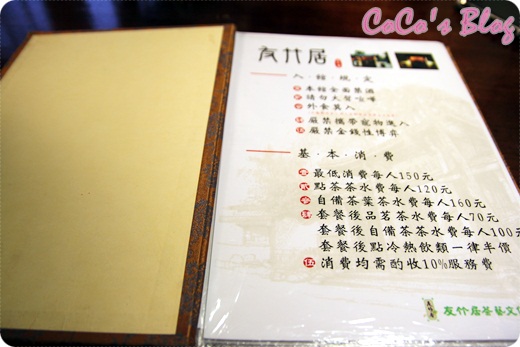 CoCo's Blog
友竹居
入·館·規·定
壹 本館全面禁酒
貳 請勿大聲喧嘩
參 外食莫入
肆 嚴禁攜帶寵物進入
伍 嚴禁金錢性博弈
基·本·消·費
壹 最低消費每人150元
貳 點茶茶水費每人120元
參 自備茶葉茶水費每人160元
肆 套餐後品茗茶水費每人70元
套餐後自備茶茶水費每人100元
套餐後點冷熱飲類一律半價
伍 消費均需酌收10%服務費
友竹居茶藝文